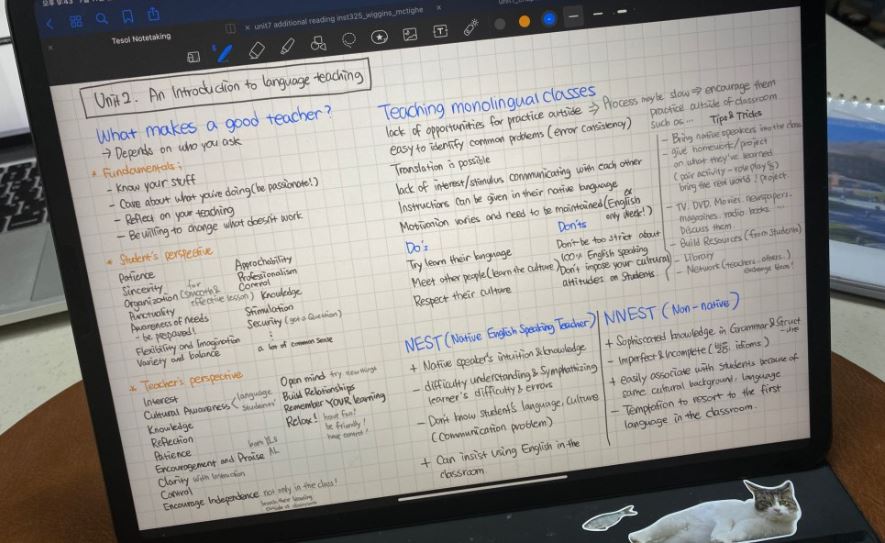 9:43
Tesol Notetaking
unit7 additional reading inst325_wiggins_mctighe
Unit 2. An Introduction to language teaching
What makes a good teacher?
→ Depends on who you ask
* Fundamentals:
- Know your stuff
- Care about what you're doing (be passionate!)
- Reflect on your teaching
- Be willing to change what doesn't work
* Student's perspective
Patience
Sincerity
Organization (smooth & effective lesson)
for
Punctuality
Awareness of needs
- be prepared!
Flexibility and Imagination
Variety and balance
Approchability
Profesionalism
Control
Knowledge
Stimulation
Security (got a Question)
a lot of common sense
* Teacher's perspective
Interest
Cultural Awareness < language
students'
Knowledge
Reflection
Patience
Encouragement and Praise
Clarity with Instruction
Control
Encourage Independence not only in the class!
Open mind try new things
Build Relationships
Remember YOUR learning
Relax! have fun!
be friendly!
have control!
Teaching monolingual classes
lack of opportunities for practice outside ⇒ Process maybe slow ⇒ encourage them
practice outside of classroom
such as...
easy to identify common problems (error consistency)
Translation is possible
lack of interest/stimulus communicating with each other
Instructions can be given in their native language
Motivation varies and need to be maintained
Tips & Tricks
- Bring native speakers into the class
- give homework/project
on what they've learned
(pair activity - role play)
bring the real world! project.
- TV. DVD. Movies. newspapers.
magazines. radio books ...
Discuss them
- Build Resources (from students)
- Library
Network (teachers. others.)
Do's
Try learn their language
Meet other people (learn the culture)
Respect their culture
Don'ts
Don't be too strict about
100% English speaking
Don't impose your cultural
attitudes on students
NEST (Native English Speaking Teacher)
+ Native speaker's intuition & knowledge
- difficulty understanding & Symphathizing
learner's difficulty & errors
- Don't know student's language, culture
(communication problem)
+ Can insist using English in the
classroom
NNEST (Non-native)
+ Sophiscated knowledge in Grammar & Struct
-ure
- Imperfect & Incomplete
idioms)
+ easily associate with students because of
same cultural background, language
- Temptation to resort to the first
language in the classroom.